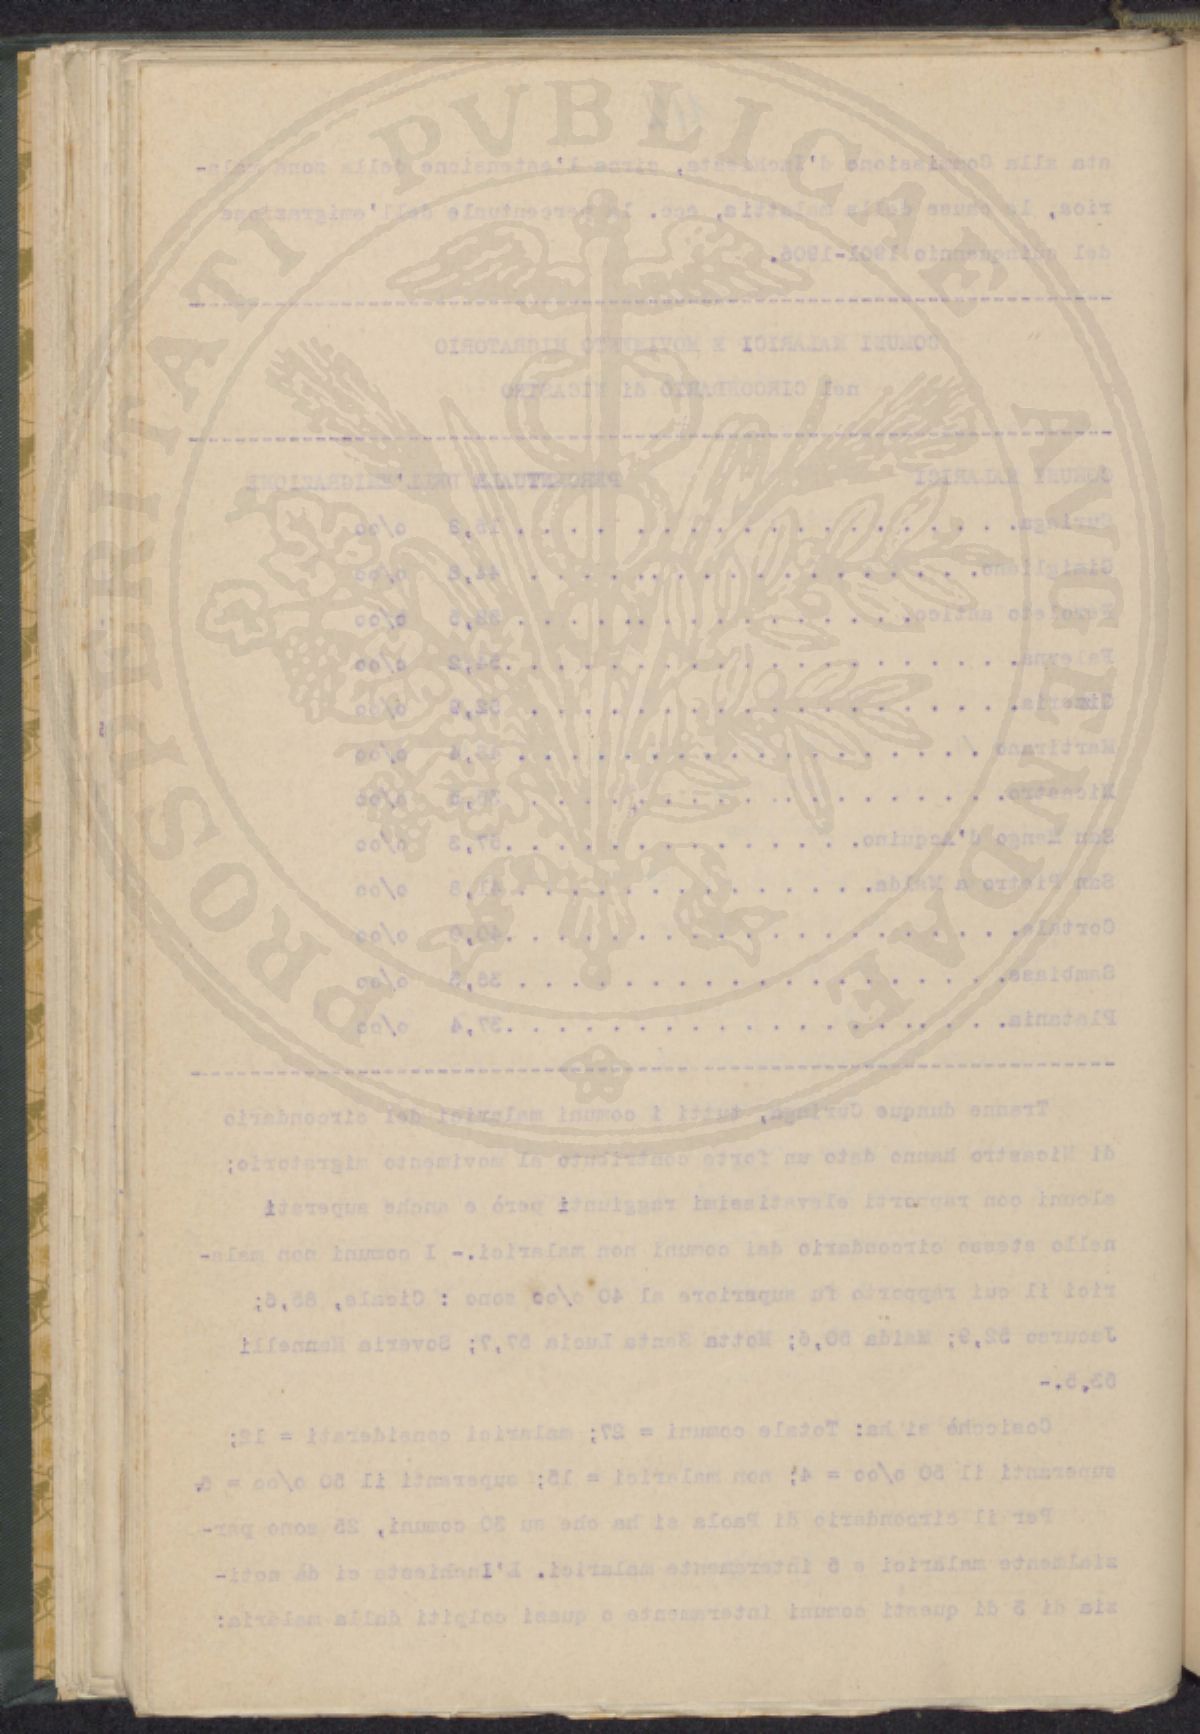 PROSPERITATI PVBLICAE AVGENDAE
ata alla Commissione d'Inchiesta, circa l'estensione della zona mala-
rica, le cause della malattia, ecc. la percentuale dell'emigrazione
del quinquennio 1901-1906.
COMUNI MALARICI E MOVIMENTO MIGRATORIO
nel CIRCONDARIO di NICASTRO
COMUNI MALARICI PERCENTUALE DELL'EMIGRAZIONE
Curinga. . . . . . . . . . . . . . . . . . . o/oo
Gimigliano. . . . . . . . . . . . . . . . . . 44,8 o/oo
Feroleto antico. . . . . . . . . . . . . . . o/oo
Falerna. . . . . . . . . . . . . . . . . . . 54,2 o/oo
Gizzeria. . . . . . . . . . . . . . . . . . . 52,9 o/oo
Martirano . . . . . . . . . . . . . . . . . . o/oo
Nicastro. . . . . . . . . . . . . . . . . . . o/oo
San Mango d'Acquino. . . . . . . . . . . . . .57,3 o/oo
San Pietro a Maida. . . . . . . . . . . . . . 41,8 o/oo
Cortale. . . . . . . . . . . . . . . . . . . .40,0 o/oo
Sambiase. . . . . . . . . . . . . . . . . . . o/oo
Platania. . . . . . . . . . . . . . . . . . . .37,4 o/oo
Tranne dunque Curinga, tutti i comuni malarici del circondario
di Nicastro hanno dato un forte contributo al movimento migratorio;
alcuni con rapporti elevatissimi raggiunti però e anche superati
nello stesso circondario dai comuni non malarici.- I comuni non mala-
rici il cui rapporto fu superiore al 40 o/oo sono : Cicala, 85,5;
Jacurso 52,9; Maida 50,6; Motta Santa Lucia 57,7; Soveria Mannelli
53,5.-
Cosicchè si ha: Totale comuni = 27; malarici considerati = 12;
superanti il 50 o/oo = 4; non malarici = 15; superanti il 50 o/oo =
Per il circondario di Paola si ha che su 30 comuni, 25 sono par-
zialmente malarici e 5 interamente malarici. L'Inchiesta ci dà noti-
zia di 3 di questi comuni interamente o quasi colpiti dalla malaria: